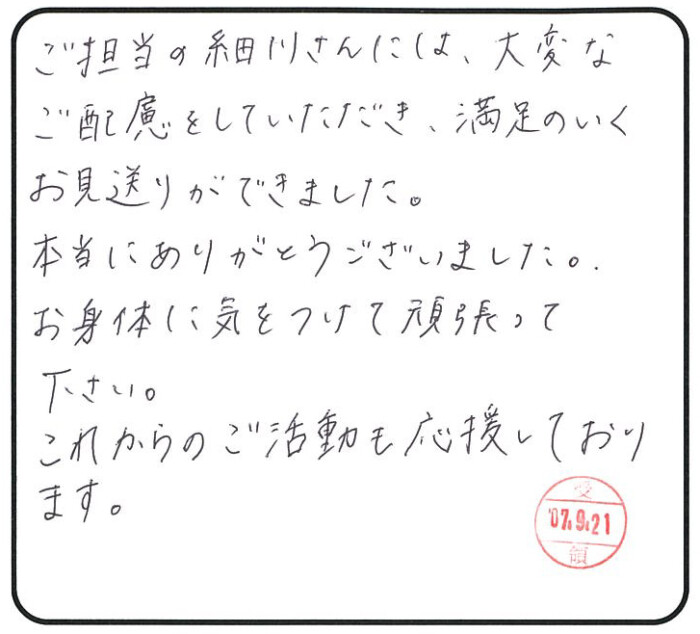 ご担当の細川さんには、大変な
ご配慮をしていただき、満足のいく
お見送りができました。
本当にありがとうございました。
お身体に気をつけて頑張って
下さい。
これからのご活動も応援しており
ます。
受
'07.9.21
領